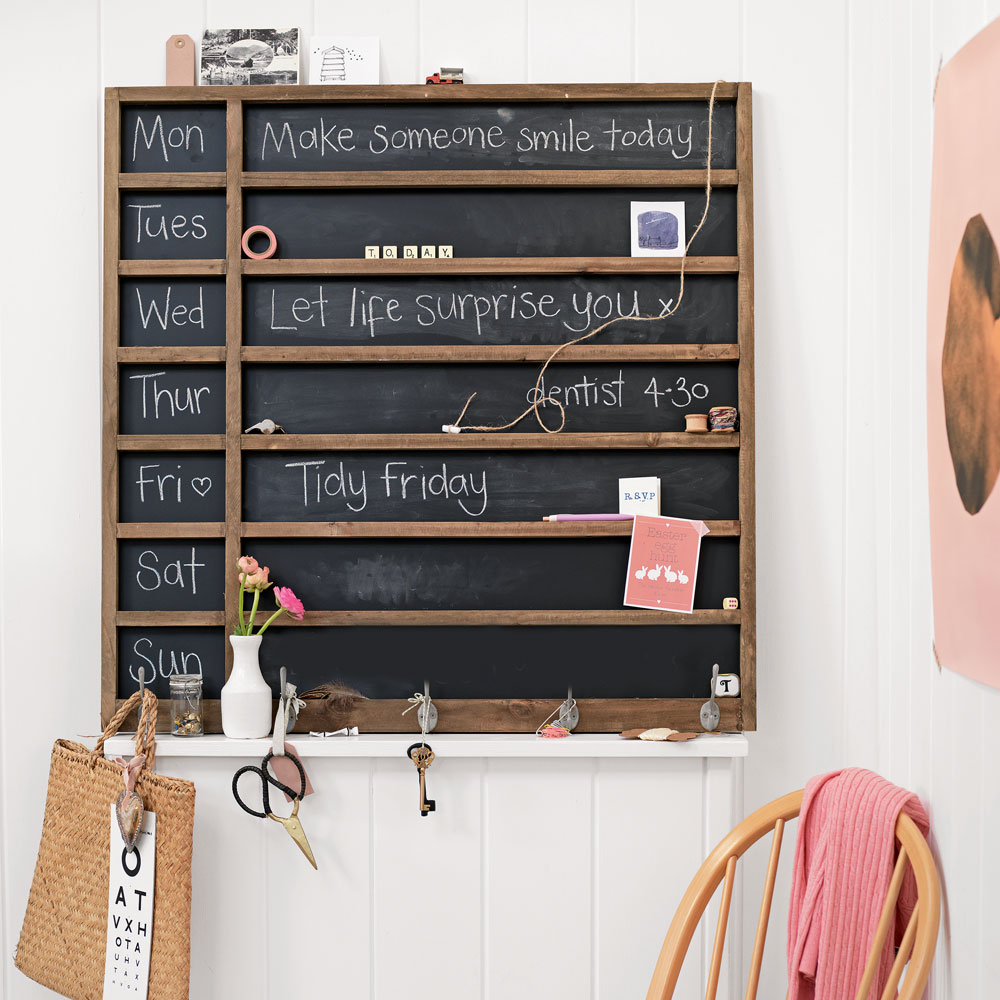 Mon Make someone smile today
Tues TODAY
Wed Let life surprise you x
Thur dentist 4-30
Fri ♡ Tidy Friday
R.S.V.P
Easter
egg
hunt
Sat
Sun
T
O
AT
VXH
OTA